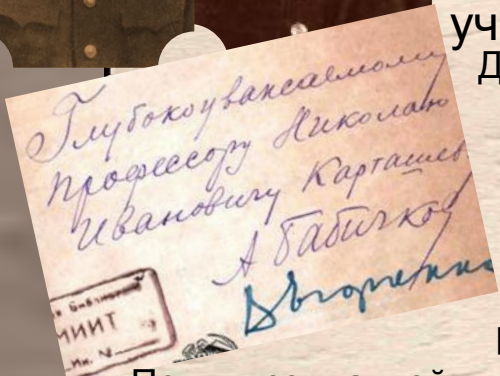 уч
Д
Глубокоуважаемому
профессору Николаю
Ивановичу Карташев
А Бабичков
Библиотека
МИИТ
Ин. N